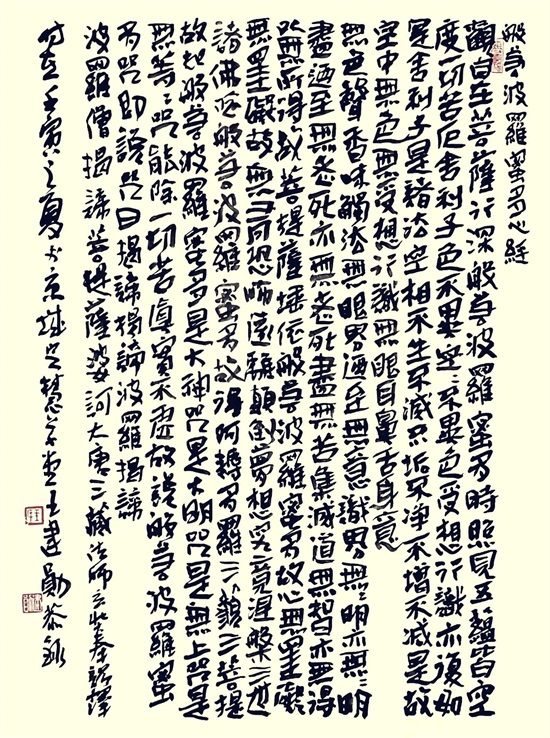 般若波羅蜜多心經
觀自在菩薩行深般若波羅蜜多時照見五蘊皆空
度一切苦厄舍利子色不異空〻不異色受想行識亦復如
是舍利子是諸法空相不生不滅不垢不淨不增不減是故
空中無色無受想行識無眼耳鼻舌身意
無色聲香味觸法無眼界迺至無意識界無〻明亦無〻明
盡迺至無老死亦無老死盡無苦集滅道無智亦無得
以無所得故菩提薩埵依般若波羅蜜多故心無罣礙
無罣礙故無有恐怖遠離顛倒夢想究竟涅槃三世
諸佛依般若波羅蜜多故得阿耨多羅三藐三菩提
故知般若波羅蜜多是大神咒是大明咒是無上咒是
無等〻咒能除一切苦真實不虛故說般若波羅蜜
多咒即說咒曰揭諦揭諦波羅揭諦
波羅僧揭諦菩提薩婆訶大唐三藏法師玄奘奉詔譯
時在壬寅之夏於京城堂王建勛恭錄